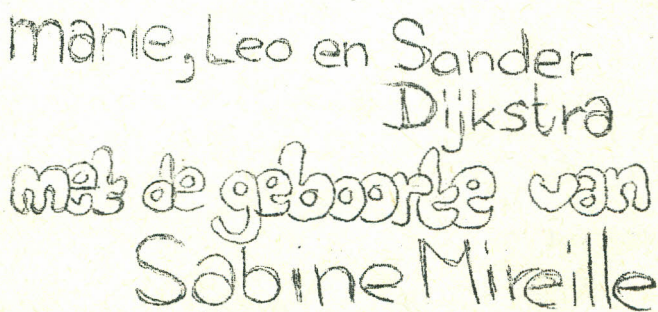 marie, Leo en Sander
Dijkstra
met de geboorte van
Sabine Mireille